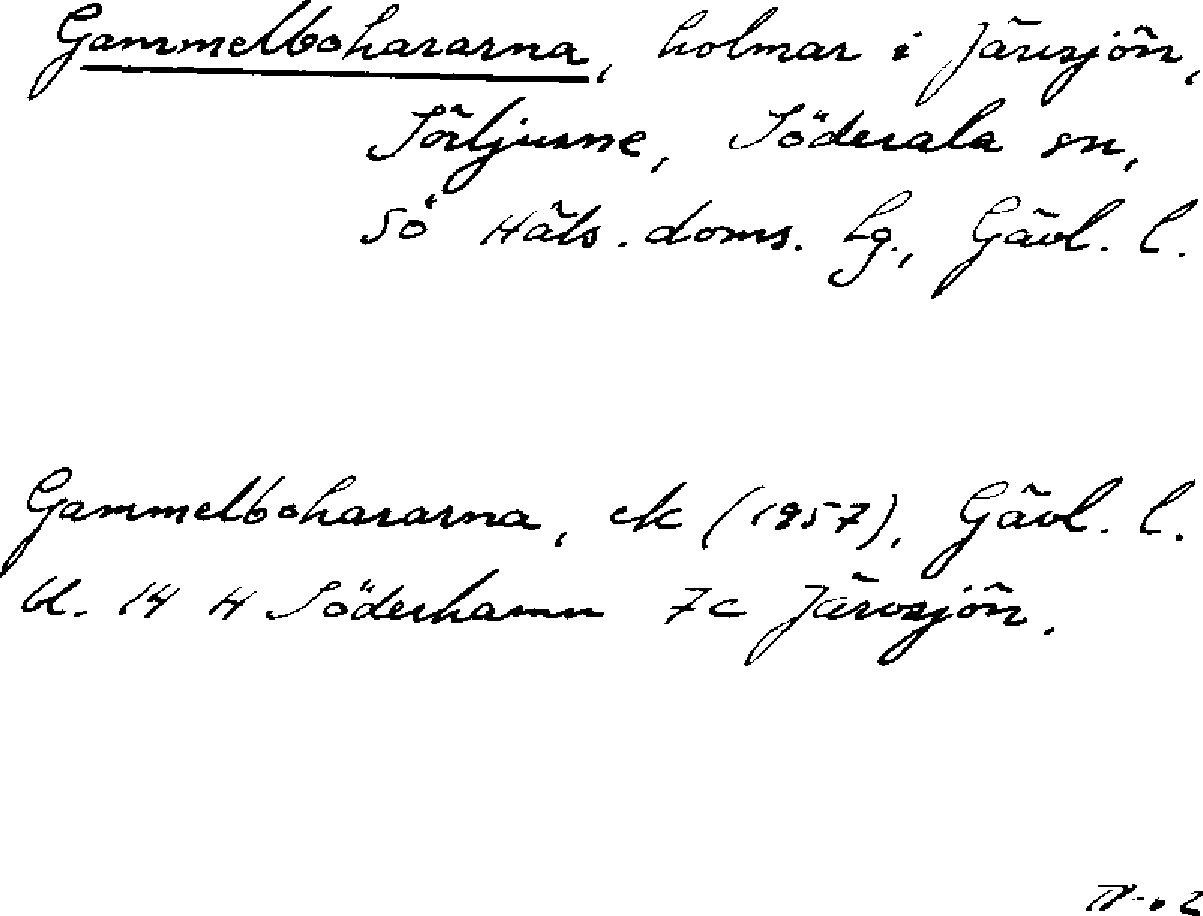 Gammelbohararna, holmar i Järvsjön,
Sörljusne, Söderala sn,
Sö Häls. doms. hg., Gävl. l.
Gammelbohararna, ek (1957), Gävl. l.
bl. 14 H Söderhamn 7c Järvsjön.